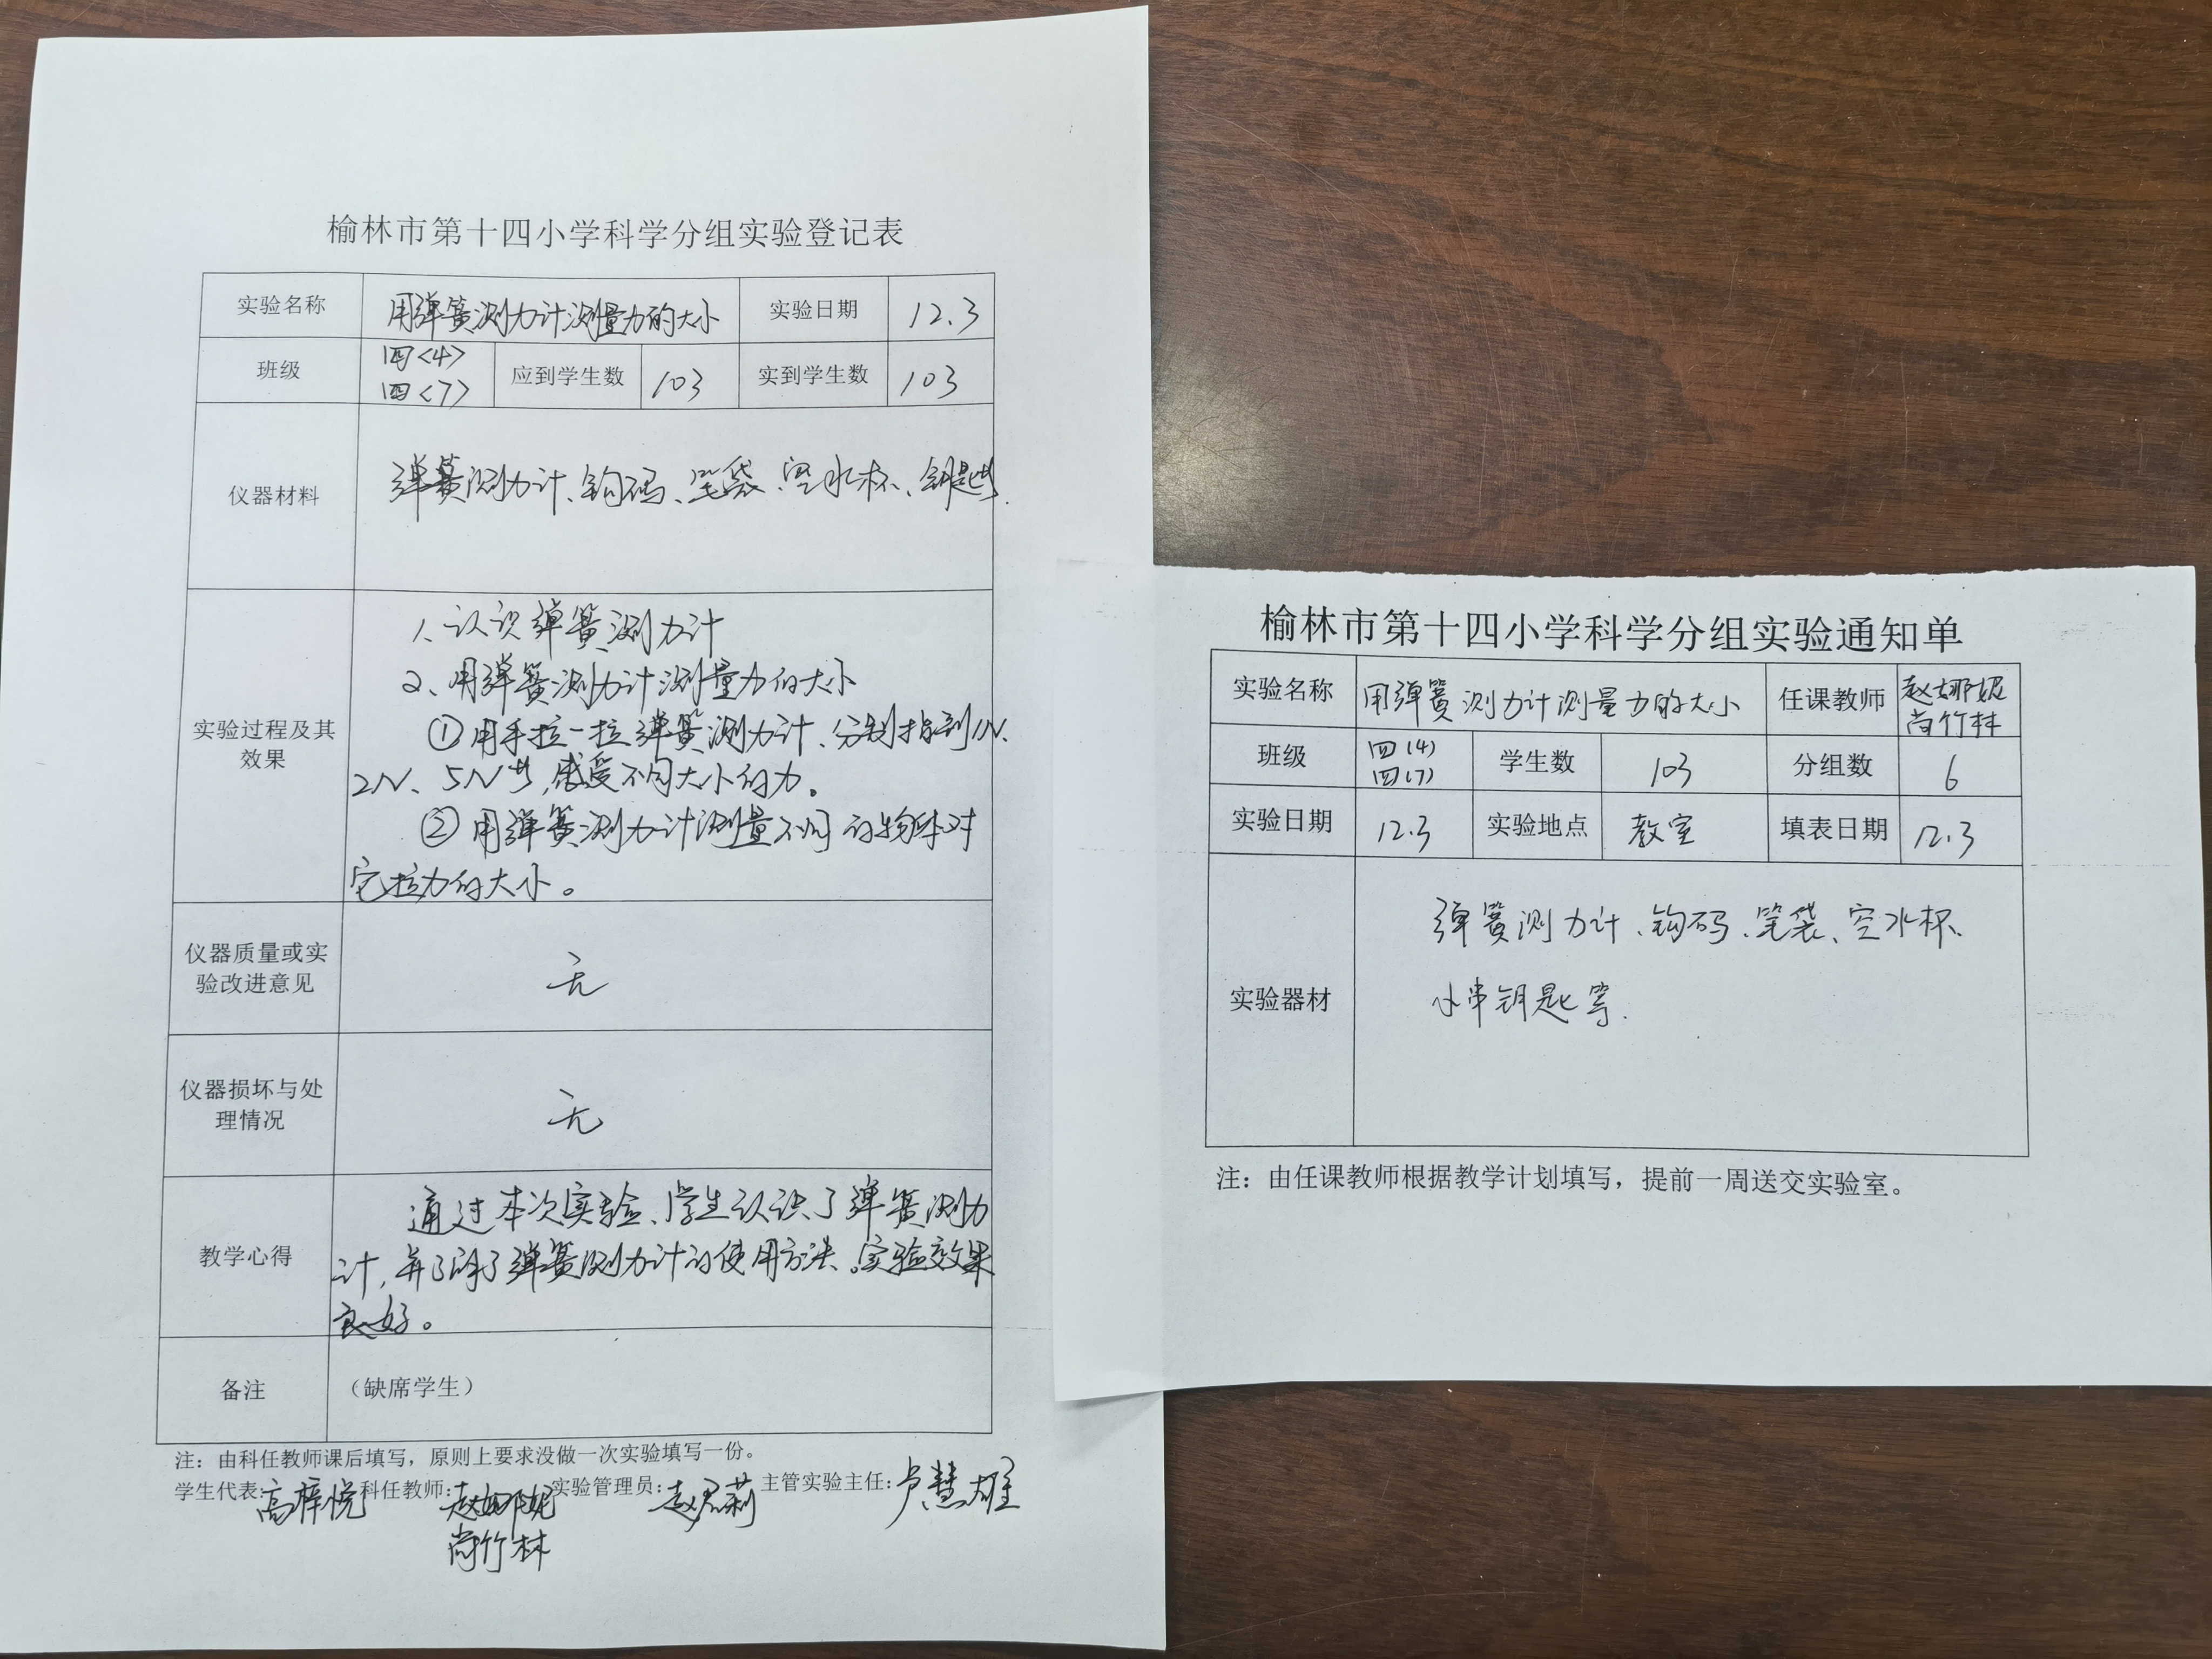 榆林市第十四小学科学分组实验登记表
实验名称 用弹簧测力计测量力的大小 实验日期 12.3
班级 四<4> 四<7> 应到学生数 103 实到学生数 103
仪器材料 弹簧测力计、钩码、笔袋、空水杯、钥匙串.
实验过程及其效果
1、认识弹簧测力计
2、用弹簧测力计测量力的大小
①用手拉一拉弹簧测力计、分别指到1N、
2N、5N等,感受不同大小的力。
②用弹簧测力计测量不同的物体对
它拉力的大小。
仪器质量或实验改进意见 无
仪器损坏与处理情况 无
教学心得
通过本次实验、学生认识了弹簧测力
计,并了解了弹簧测力计的使用方法。实验效果
良好。
备注 (缺席学生)
注:由科任教师课后填写,原则上要求没做一次实验填写一份。
学生代表:高梓悦 科任教师:赵娜妮 实验管理员:赵君莉 主管实验主任:卢慧雄
尚竹林
榆林市第十四小学科学分组实验通知单
实验名称 用弹簧测力计测量力的大小 任课教师 赵娜妮 尚竹林
班级 四(4) 四(7) 学生数 103 分组数 6
实验日期 12.3 实验地点 教室 填表日期 12.3
实验器材
弹簧测力计、钩码、笔袋、空水杯、
小串钥匙等.
注:由任课教师根据教学计划填写,提前一周送交实验室。